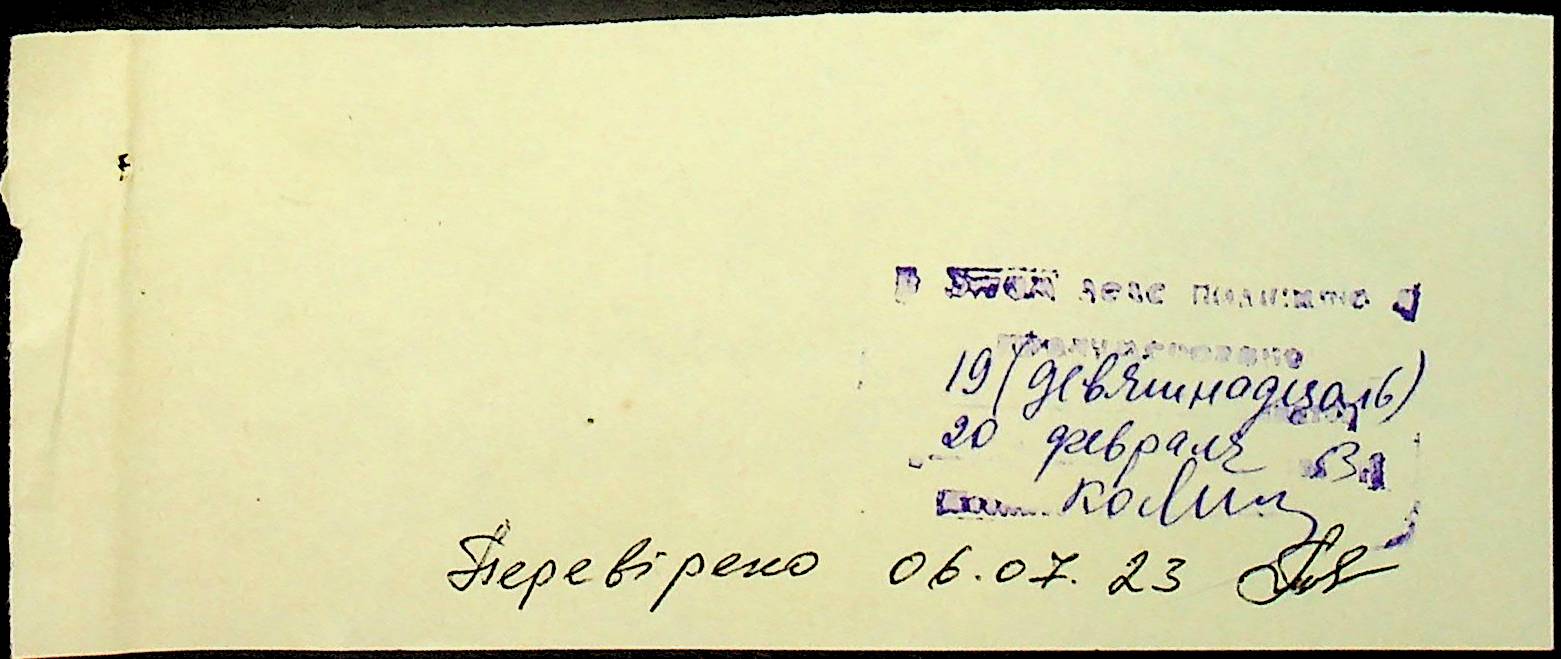 В этом деле подшито и
пронумеровано
19 (девятнадцать)
20 февраля
Перевірено 06.07.23